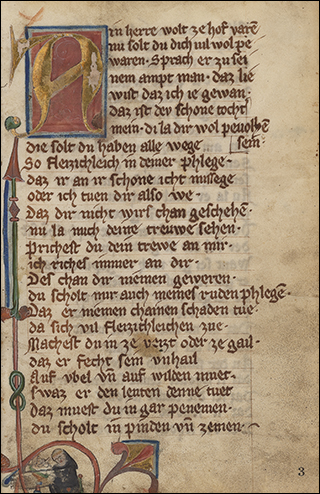 in herre wolt ze hof varē
nu solt du dich vil wol pe
waren · Sprach er zu sei
nem ampt man · daz lie
wist daz ich ie gewan ·
daz ist dev schone tocht
mein · di la dir wol pevolhē
die solt du haben alle wege sein
So fleizichleich in deiner phlege ·
daz ir an ir schone icht missege
oder ich tuen dir also we ·
daz dir nicht wirs chan geschehē ·
nu la mich deine treuwe sehen ·
Prichest du dein trewe an mir ·
ich riches immer an dir ·
Des chan dir niemen geweren ·
du scholt mir auch meines ruden phlegē ·
Daz er niemen chainen schaden tue ·
da sich vil fleizichleichen zue ·
Machest du in ze oder ze gail ·
daz er sein unhail
Auf vbel vn̄ auf wilden muet ·
swaz er den leuten denne tuet
daz muest du in gar penemen ·
du scholt in pinden vn̄ zemen ·
3